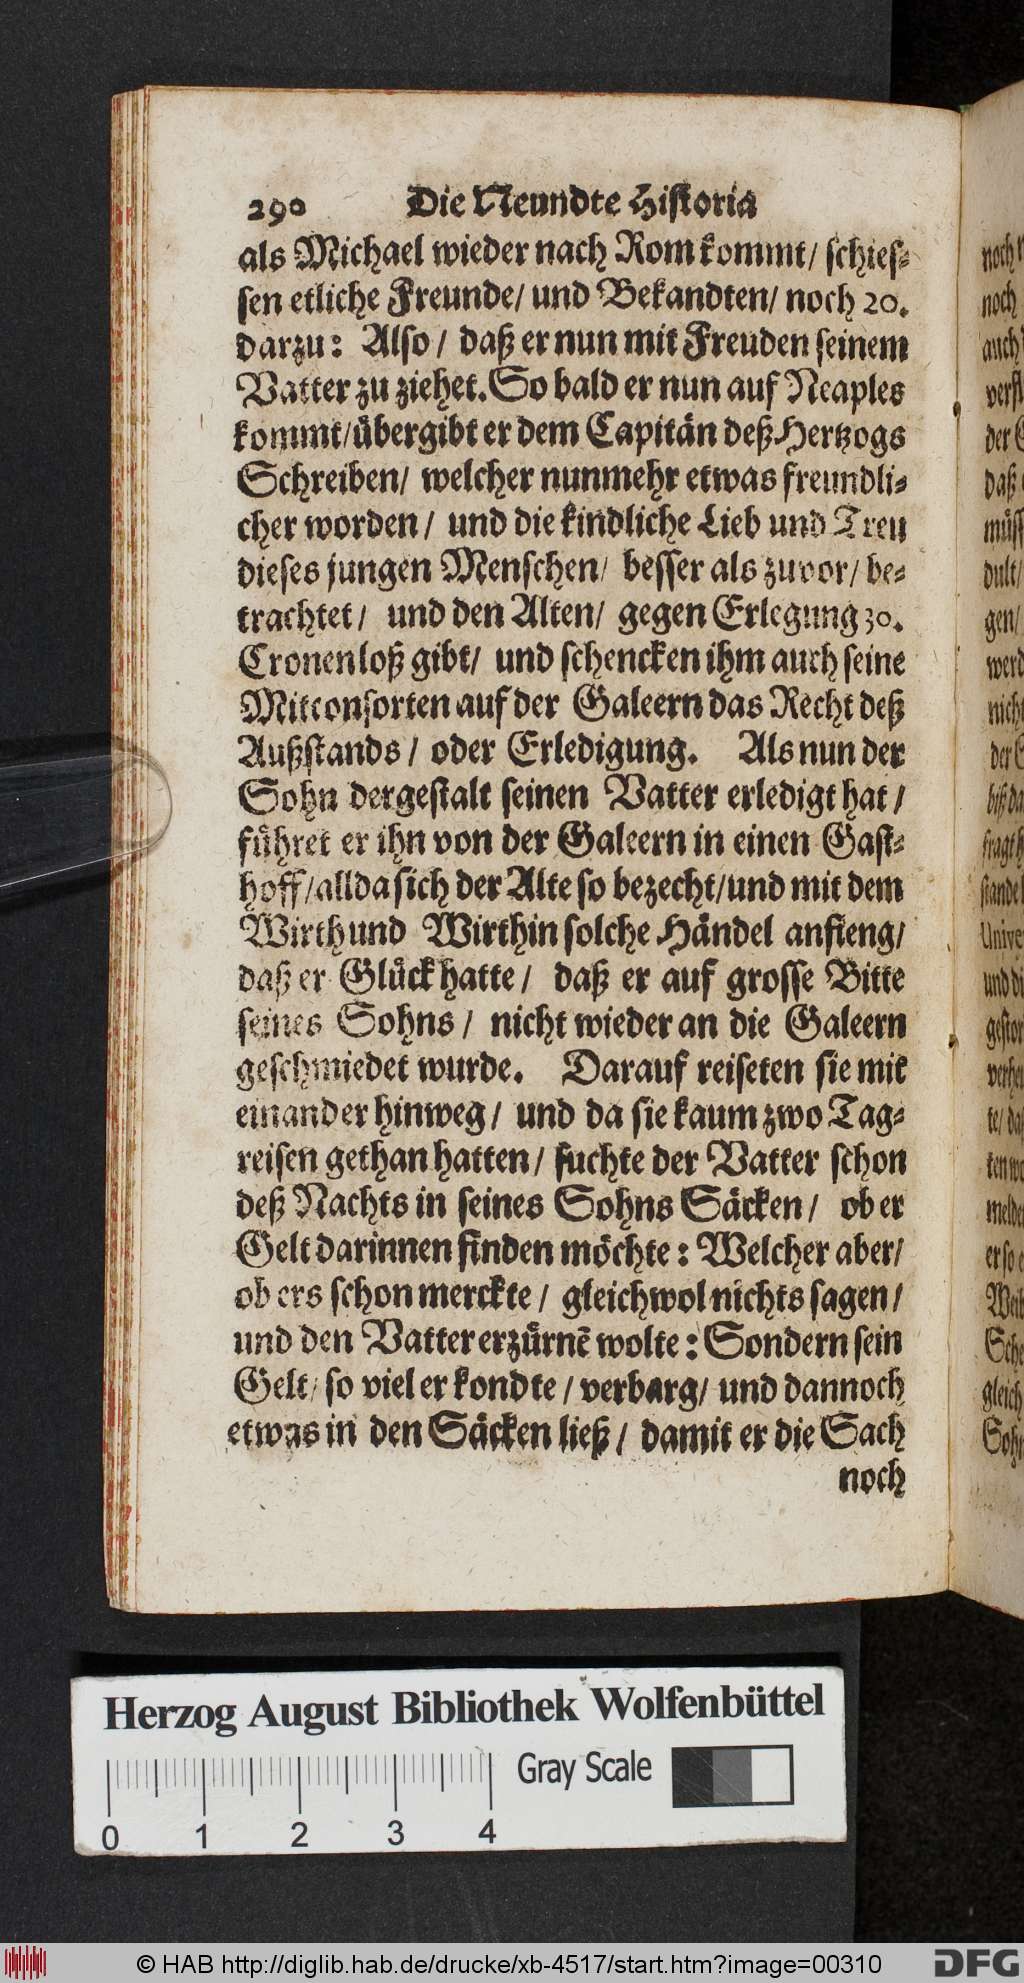 290 Die Neundte Historia
als Michael wieder nach Rom kommt/ schies-
sen etliche Freunde/ und Bekandten/ noch 20.
darzu: Also/ daß er nun mit Freuden seinem
Vatter zu ziehet. So bald er nun auf Neaples
kommt/ übergibt er dem Capitän deß Hertzogs
Schreiben/ welcher nunmehr etwas freundli-
cher worden/ und die kindliche Lieb und Treu
dieses jungen Menschen/ besser als zuvor/ be-
trachtet/ und den Alten/ gegen Erlegung 30.
Cronen loß gibt/ und schencken ihm auch seine
Mitconsorten auf der Galeern das Recht deß
Außstands/ oder Erledigung. Als nun der
Sohn dergestalt seinen Vatter erledigt hat/
führet er ihn von der Galeern in einen Gast-
hoff/ allda sich der Alte so bezecht/ und mit dem
Wirth und Wirthin solche Händel anfieng/
daß er Glück hatte/ daß er auf grosse Bitte
seines Sohns/ nicht wieder an die Galeern
geschmiedet wurde. Darauf reiseten sie mit
einander hinweg/ und da sie kaum zwo Tag-
reisen gethan hatten/ suchte der Vatter schon
deß Nachts in seines Sohns Säcken/ ob er
Gelt darinnen finden möchte: Welcher aber/
ob ers schon merckte/ gleichwol nichts sagen/
und den Vatter erzürnē wolte: Sondern sein
Gelt/ so viel er kondte/ verbarg/ und dannoch
etwas in den Säcken ließ/ damit er die Sach
noch
noch
noch
auch
der
daß
müss
dult/
gen/
werd
nicht
der
und di
gestor
te/ daß
er so
gleich
Herzog August Bibliothek Wolfenbüttel
Gray Scale
0 1 2 3 4
© HAB http://diglib.hab.de/drucke/xb-4517/start.htm?image=00310
DFG